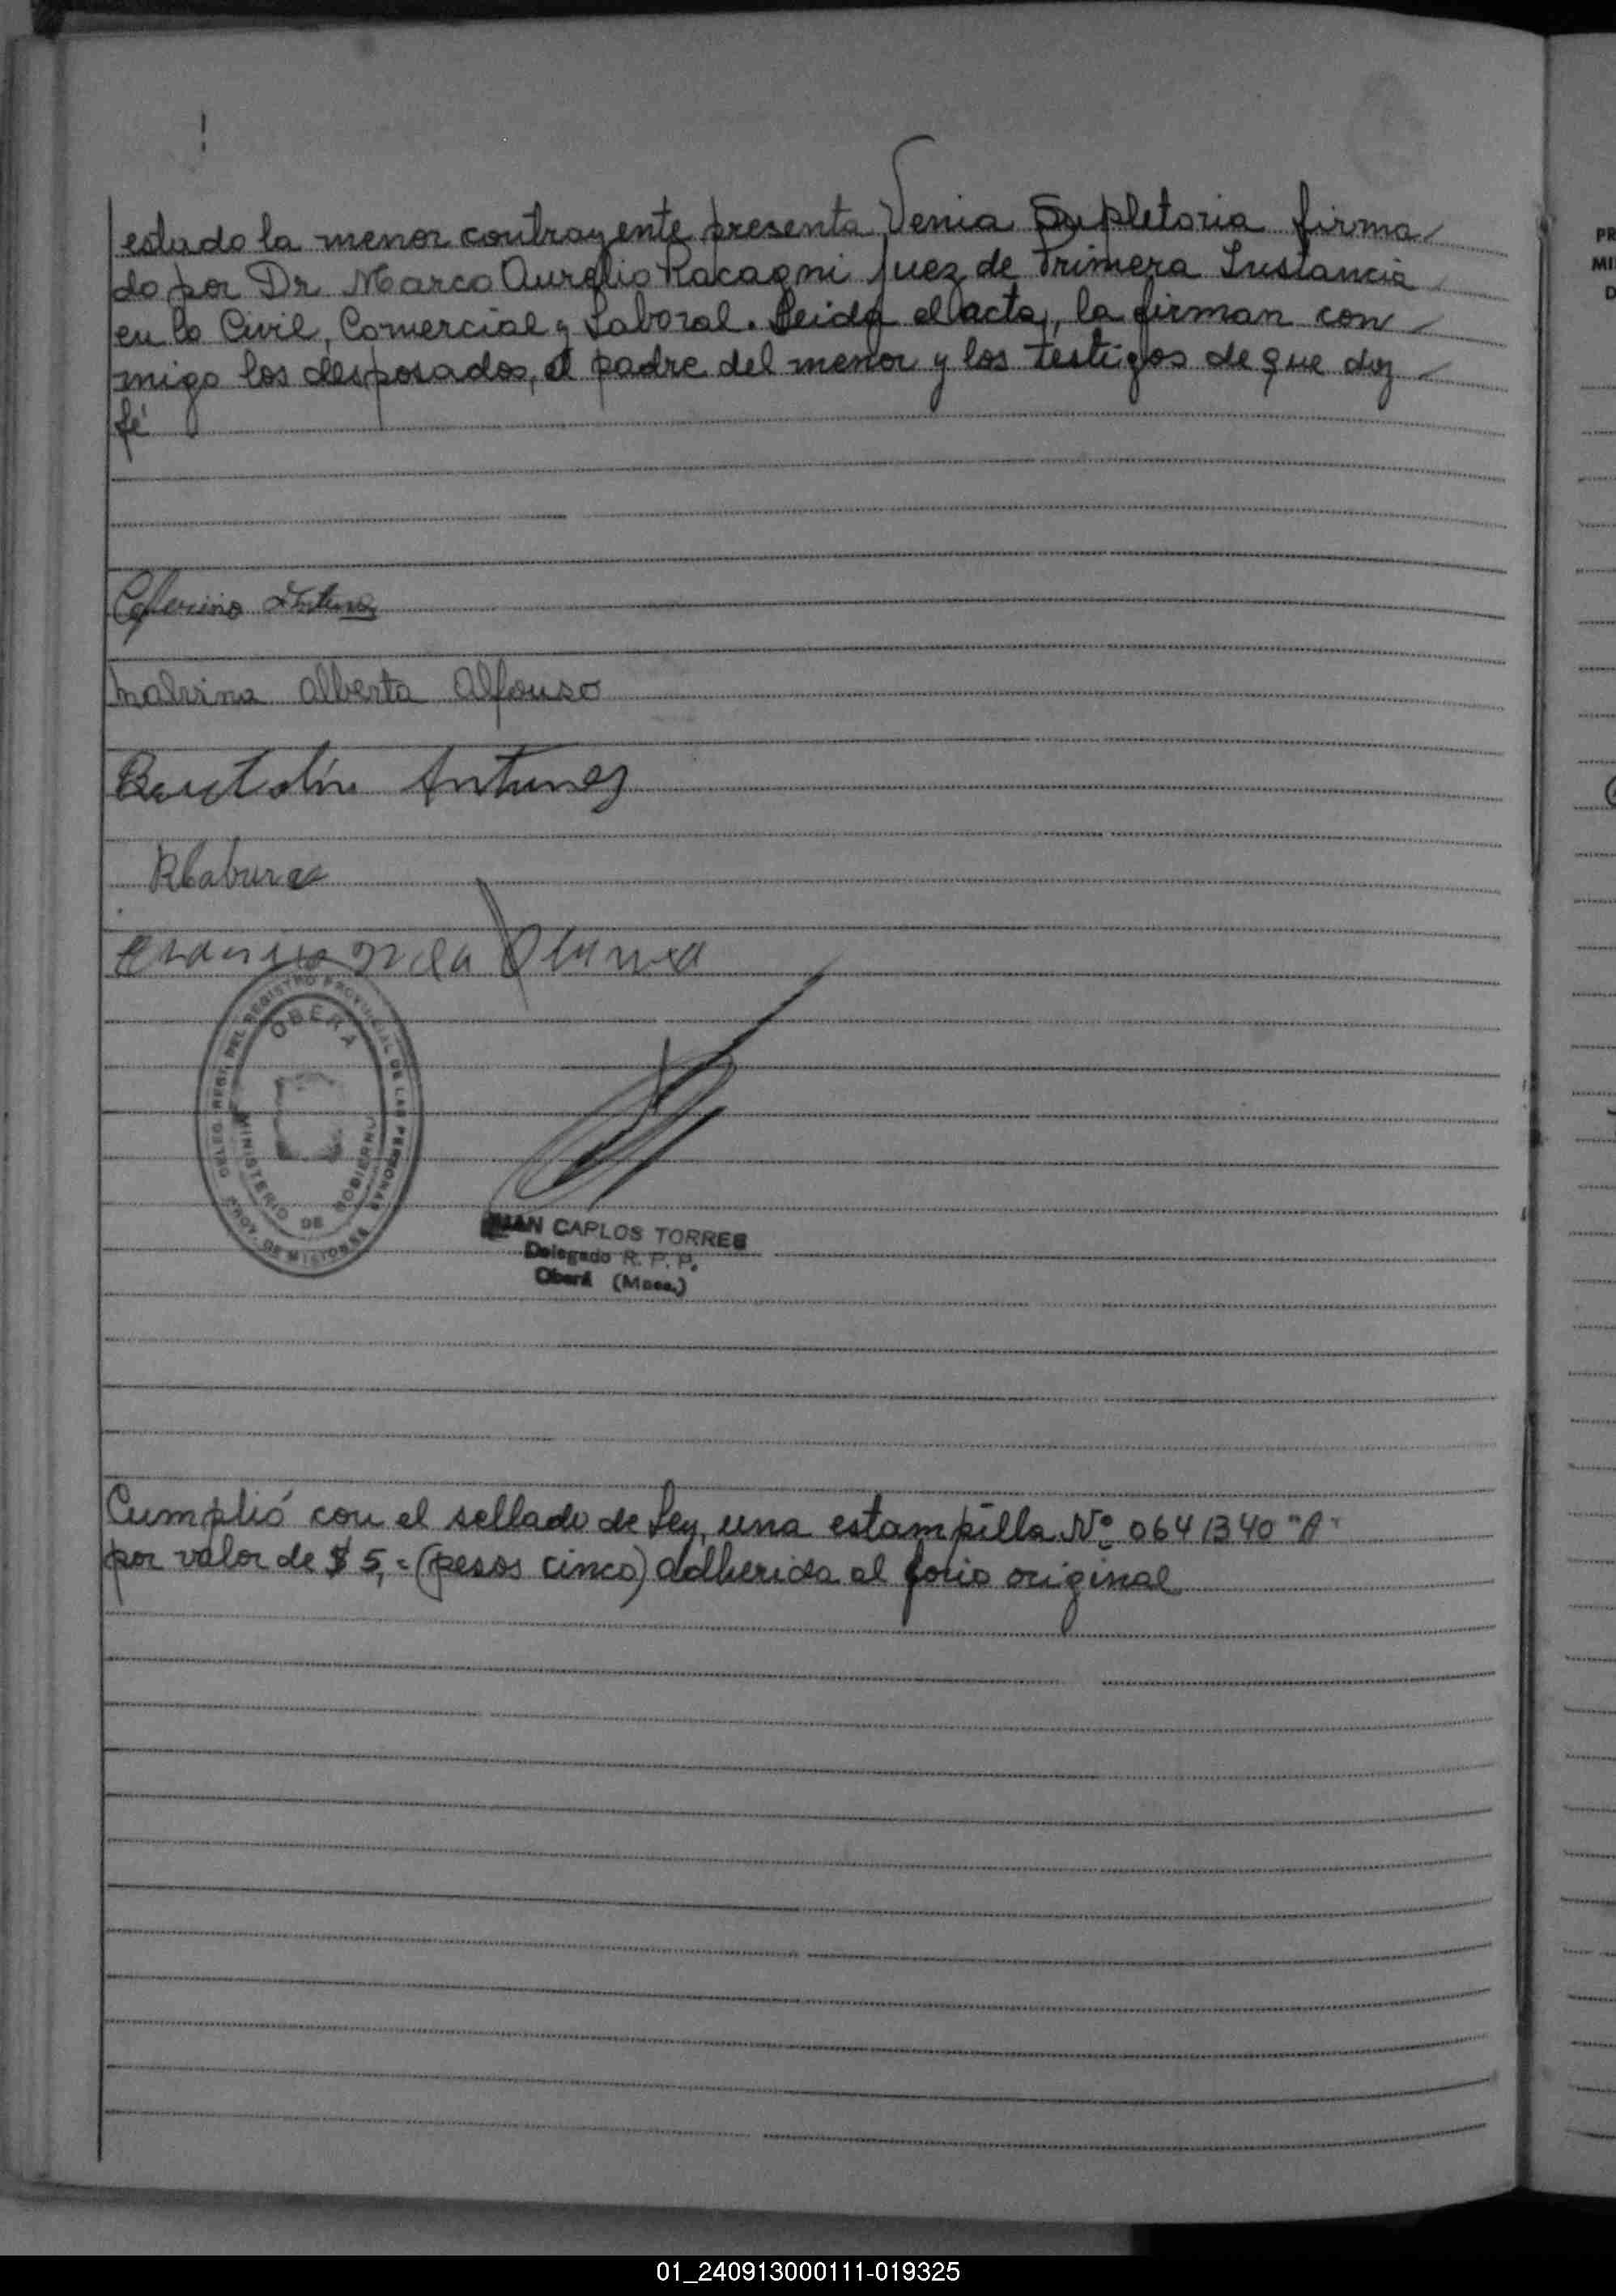 estado la menor contrayente presenta Venia Supletoria firma
do por Dr. Marco Aurelio Racagni Juez de Primera Instancia
en lo Civil, Comercial y Laboral. Leida el acta, la firman con
migo los desposados, el padre del menor y los testigos de que doy
fé
Ceferino Antunez
Malvina Alberta Alfonso
Antunez
OBERA
MINISTERIO DE GOBIERNO
DEL REGISTRO PROVINCIAL DE LAS PERSONAS
DE MISIONES
JUAN CARLOS TORRES
Delegado R. P. P.
Oberá (Mnes.)
Cumplió con el sellado de Ley, una estampilla Nº 0641340 "A"
por valor de $ 5,= (pesos cinco) adherida al folio original
PR
MI
D
01_240913000111-019325